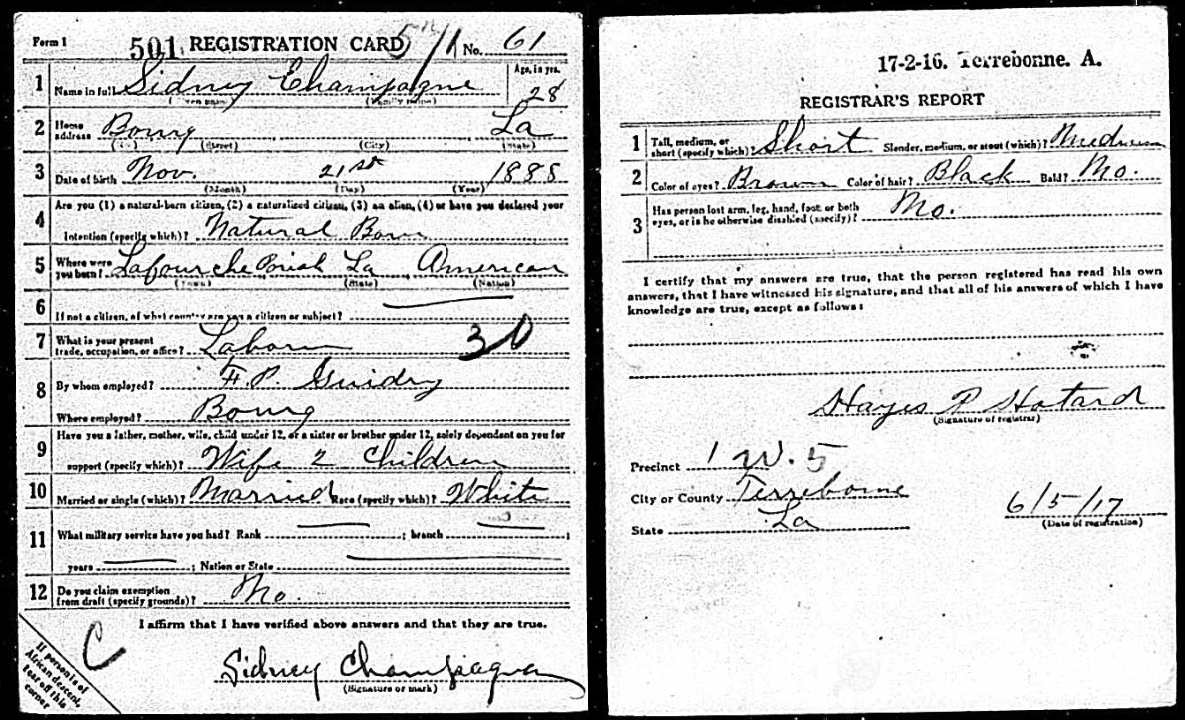 Form 1 501 REGISTRATION CARD 5/1 No. 61
1 Name in full Sidney Champagne Age, in yrs. 28
(Given name) (Family name)
2 Home address Bourg La
(No.) (Street) (City) (State)
3 Date of birth Nov. 21st 1888
(Month) (Day) (Year)
Are you (1) a natural-born citizen, (2) a naturalized citizen, (3) an alien, (4) or have you declared your
4 intention (specify which)? Natural Born
5 Where were you born? Lafourche Parish La American
(Town) (State) (Nation)
6 If not a citizen, of what country are you a citizen or subject?
7 What is your present trade, occupation, or office? Laborer 30
8 By whom employed? F. P. Guidry
Where employed? Bourg
Have you a father, mother, wife, child under 12, or a sister or brother under 12, solely dependent on you for
9 support (specify which)? Wife 2 Children
10 Married or single (which)? Married Race (specify which)? White
11 What military service have you had? Rank ; branch ;
years ; Nation or State
12 Do you claim exemption from draft (specify grounds)? No.
I affirm that I have verified above answers and that they are true.
C
Sidney Champagne
(Signature or mark)
If person is of
African descent,
tear off this
corner
17-2-16. Terrebonne. A.
REGISTRAR'S REPORT
1 Tall, medium, or short (specify which)? Short Slender, medium, or stout (which)? Medium
2 Color of eyes? Brown Color of hair? Black Bald? No.
3 Has person lost arm, leg, hand, foot, or both eyes, or is he otherwise disabled (specify)? No.
I certify that my answers are true, that the person registered has read his own
answers, that I have witnessed his signature, and that all of his answers of which I have
knowledge are true, except as follows:
Hayes P Hotard
(Signature of registrar)
Precinct 1 W. 5
City or County Terrebonne
State La
6/5/17
(Date of registration)